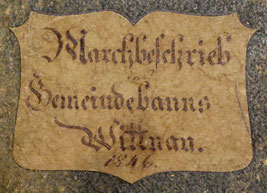 Marchbeschrieb
des
Gemeindebanns
Wittnau.
1846.